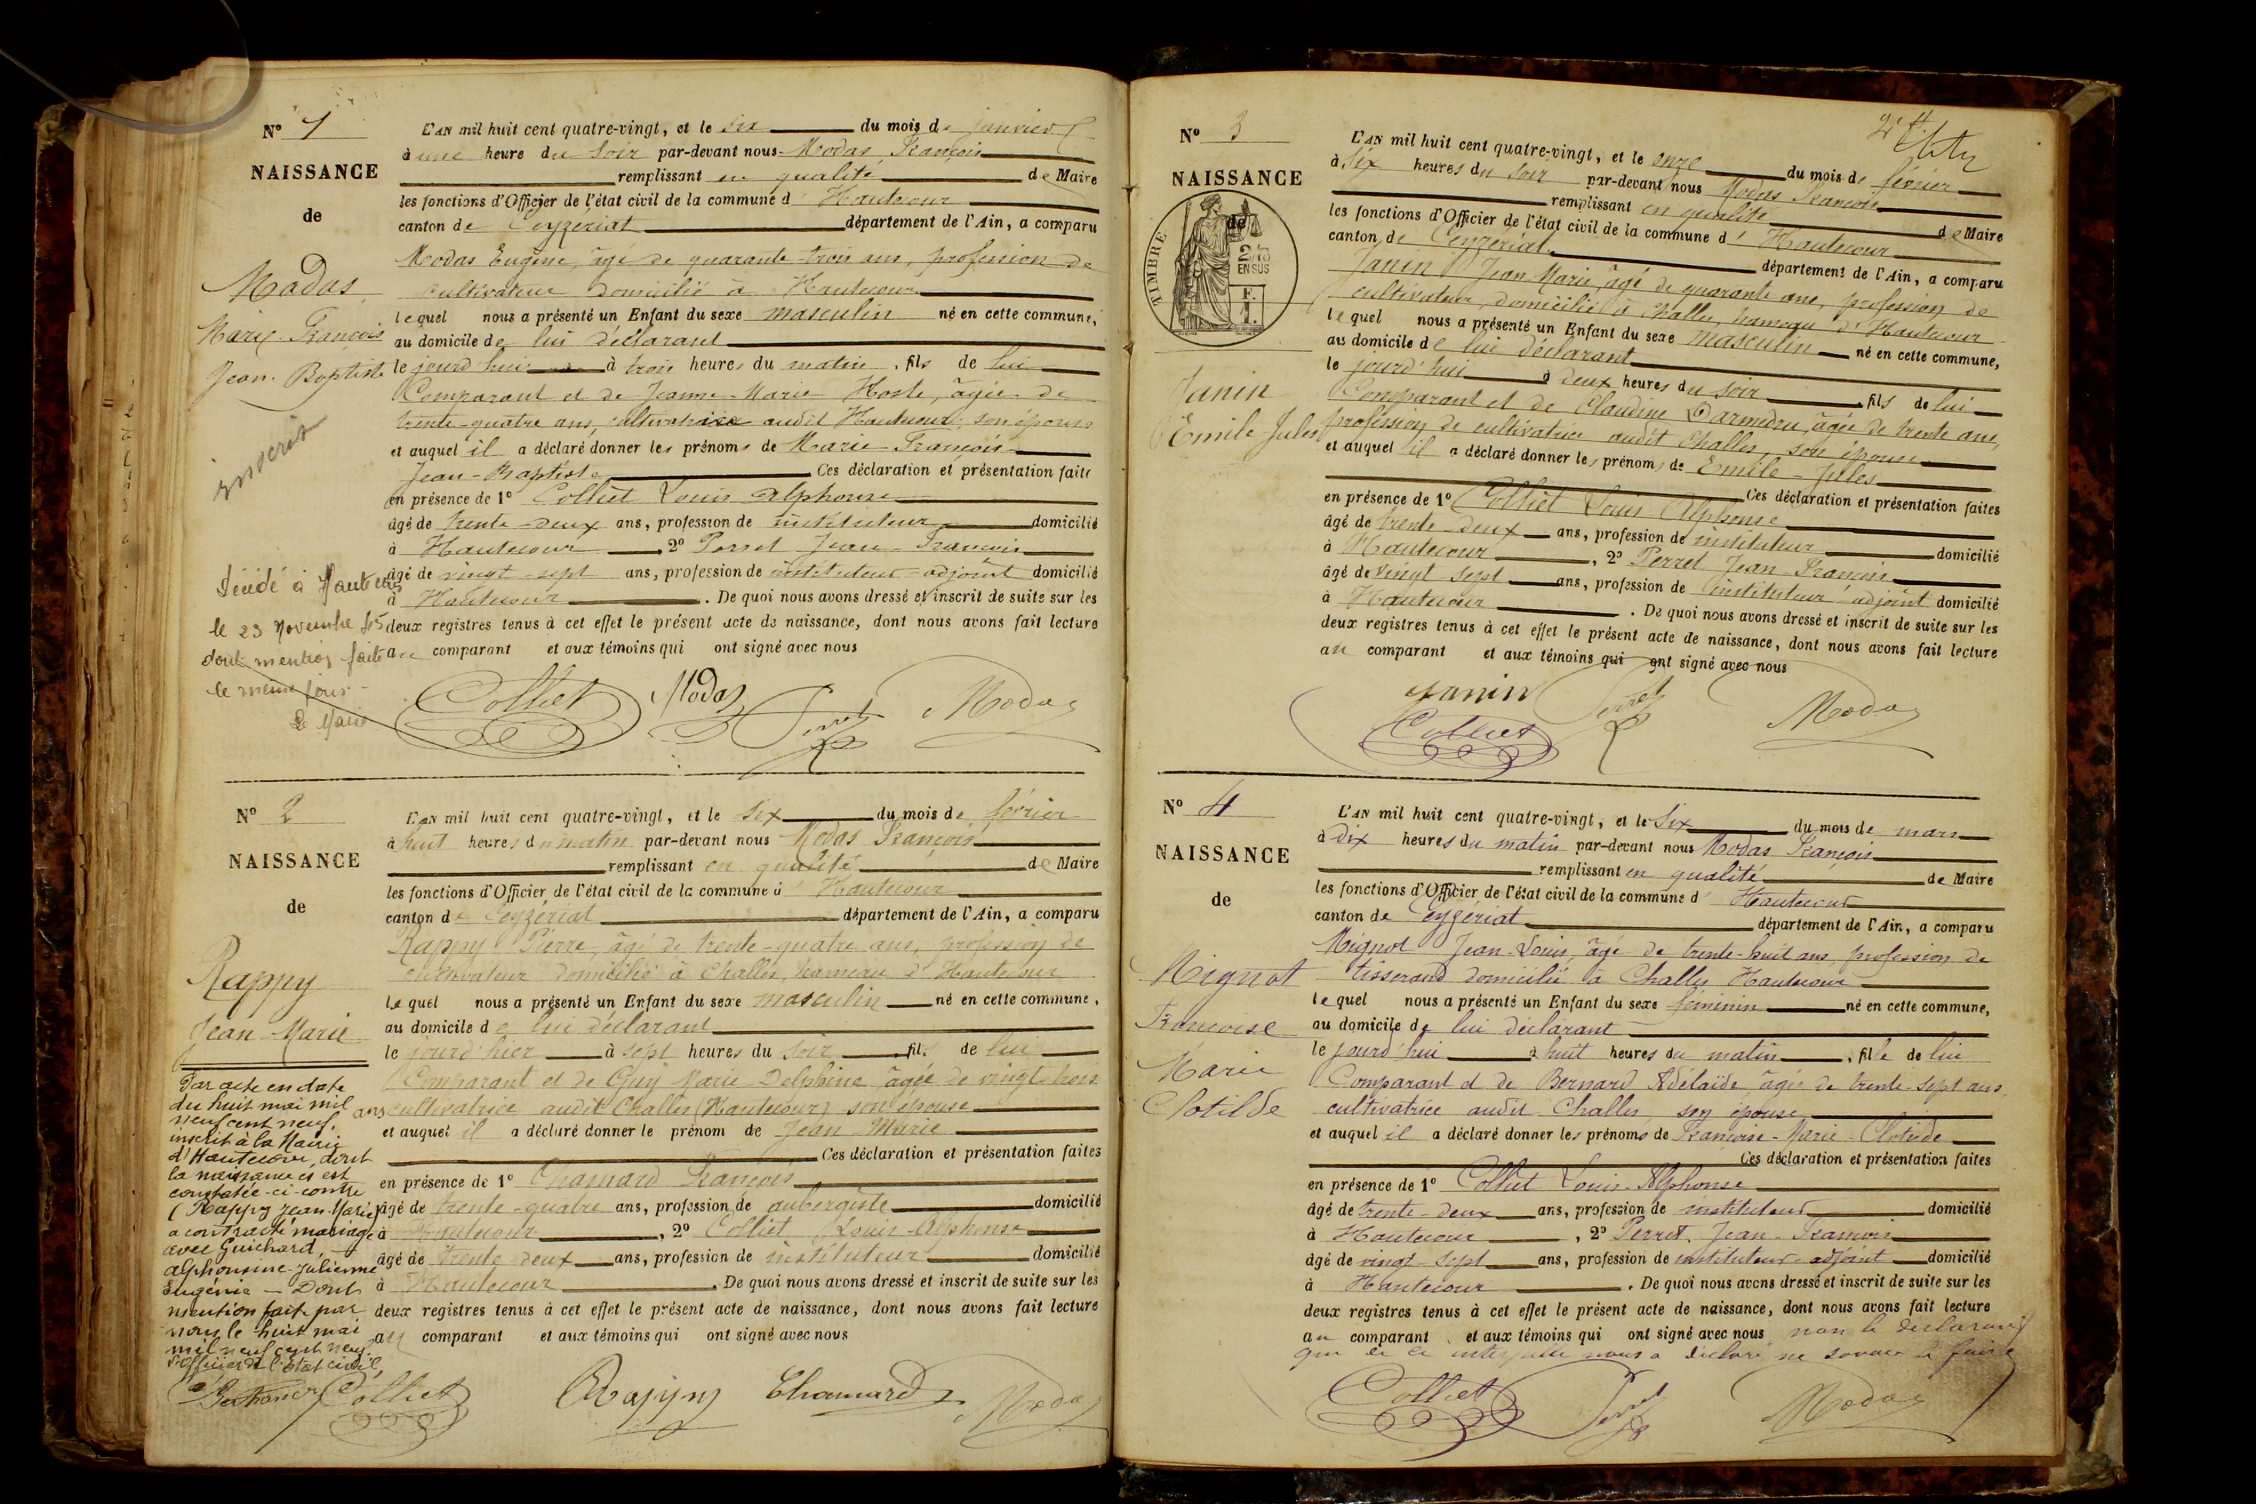 N° 1
NAISSANCE
de
Modas
Marie-François
Jean-Baptiste
inscrit
Décédé à Hautecour
le 23 Novembre 45
dont mention faite
le même jour
Le Maire
L'AN mil huit cent quatre-vingt, et le six du mois de janvier
à une heure du soir par-devant nous Modas François
remplissant en qualité de Maire
les fonctions d'Officier de l'état civil de la commune d'Hautecour
canton de Ceyzériat département de l'Ain, a comparu
Modas Eugène, âgé de quarante-trois ans, profession de
cultivateur domicilié à Hautecour
lequel nous a présenté un Enfant du sexe masculin né en cette commune,
au domicile de lui déclarant
le jourd'hui à trois heures du matin, fils de lui
Comparant et de Jeanne-Marie Hoste, âgée de
trente-quatre ans, cultivatrice audit Hautecour, son épouse
et auquel il a déclaré donner les prénoms de Marie-François-
Jean-Baptiste Ces déclaration et présentation faites
en présence de 1° Colliet Louis Alphonse
âgé de trente-deux ans, profession de instituteur domicilié
à Hautecour 2° Perret Jean-François
âgé de vingt-sept ans, profession de instituteur-adjoint domicilié
à Hautecour. De quoi nous avons dressé et inscrit de suite sur les
deux registres tenus à cet effet le présent acte de naissance, dont nous avons fait lecture
au comparant et aux témoins qui ont signé avec nous
Colliet Modas Perret Modas
N° 2
NAISSANCE
de
Rappy
Jean-Marie
Par acte en date
du huit mai mil
neuf cent neuf,
inscrit à la Mairie
d'Hautecour, dont
la naissance est
constatée ci-contre
(Rappy Jean-Marie)
a contracté mariage
avec Guichard,
Alphonsine-Julienne
Eugénie - Dont
mention faite par
nous le huit mai
mil neuf cent neuf.
L'officier de l'état civil,
L'AN mil huit cent quatre-vingt, et le six du mois de février
à huit heures du matin par-devant nous Modas François
remplissant en qualité de Maire
les fonctions d'Officier de l'état civil de la commune d'Hautecour
canton de Ceyzériat département de l'Ain, a comparu
Rappy Pierre, âgé de trente-quatre ans, profession de
cultivateur domicilié à Challes, hameau d'Hautecour
lequel nous a présenté un Enfant du sexe masculin né en cette commune,
au domicile de lui déclarant
le jourd'hier à sept heures du soir, fils de lui
Comparant et de Guy Marie Delphine âgée de vingt-trois
ans cultivatrice audit Challes (Hautecour) son épouse
et auquel il a déclaré donner le prénom de Jean-Marie
Ces déclaration et présentation faites
en présence de 1° Chamard François
âgé de trente-quatre ans, profession de aubergiste domicilié
à Hautecour, 2° Colliet Louis-Alphonse
âgé de trente-deux ans, profession de instituteur domicilié
à Hautecour. De quoi nous avons dressé et inscrit de suite sur les
deux registres tenus à cet effet le présent acte de naissance, dont nous avons fait lecture
au comparant et aux témoins qui ont signé avec nous
Colliet Rappy Chamard Modas
N° 3
NAISSANCE
de
TIMBRE
EN SUS
Janin
Emile Jules
L'AN mil huit cent quatre-vingt, et le onze du mois de février
à six heures du soir par-devant nous Modas François
remplissant en qualité de Maire
les fonctions d'Officier de l'état civil de la commune d'Hautecour
canton de Ceyzériat département de l'Ain, a comparu
Janin Jean Marie, âgé de quarante ans, profession de
cultivateur, domicilié à Challes, hameau d'Hautecour
lequel nous a présenté un Enfant du sexe masculin né en cette commune,
au domicile de lui déclarant
le jourd'hui à deux heures du soir, fils de lui
Comparant et de Claudine Darmedru, âgée de trente ans,
profession de cultivatrice audit Challes, son épouse
et auquel il a déclaré donner les prénoms de Emile-Jules
Ces déclaration et présentation faites
en présence de 1° Colliet Louis Alphonse
âgé de trente-deux ans, profession de instituteur domicilié
à Hautecour, 2° Perret Jean-François
âgé de vingt-sept ans, profession de instituteur adjoint domicilié
à Hautecour. De quoi nous avons dressé et inscrit de suite sur les
deux registres tenus à cet effet le présent acte de naissance, dont nous avons fait lecture
au comparant et aux témoins qui ont signé avec nous
Janin Perret Modas
Colliet
N° 4
NAISSANCE
de
Mignot
Françoise
Marie
Clotilde
L'AN mil huit cent quatre-vingt, et le six du mois de mars
à dix heures du matin par-devant nous Modas François
remplissant en qualité de Maire
les fonctions d'Officier de l'état civil de la commune d'Hautecour
canton de Ceyzériat département de l'Ain, a comparu
Mignot Jean-Louis, âgé de trente-huit ans profession de
tisserand domicilié à Challes Hautecour
lequel nous a présenté un Enfant du sexe féminin né en cette commune,
au domicile de lui déclarant
le jourd'hui à huit heures du matin, fille de lui
Comparant et de Bernard Adélaïde âgée de trente-sept ans,
cultivatrice audit Challes, son épouse
et auquel il a déclaré donner les prénoms de Françoise-Marie-Clotilde
Ces déclaration et présentation faites
en présence de 1° Colliet Louis-Alphonse
âgé de trente-deux ans, profession de instituteur domicilié
à Hautecour, 2° Perret Jean-François
âgé de vingt-sept ans, profession de instituteur-adjoint domicilié
à Hautecour. De quoi nous avons dressé et inscrit de suite sur les
deux registres tenus à cet effet le présent acte de naissance, dont nous avons fait lecture
au comparant et aux témoins qui ont signé avec nous non le déclarant
qui de ce interpellé nous a déclaré ne savoir le faire
Colliet Perret Modas